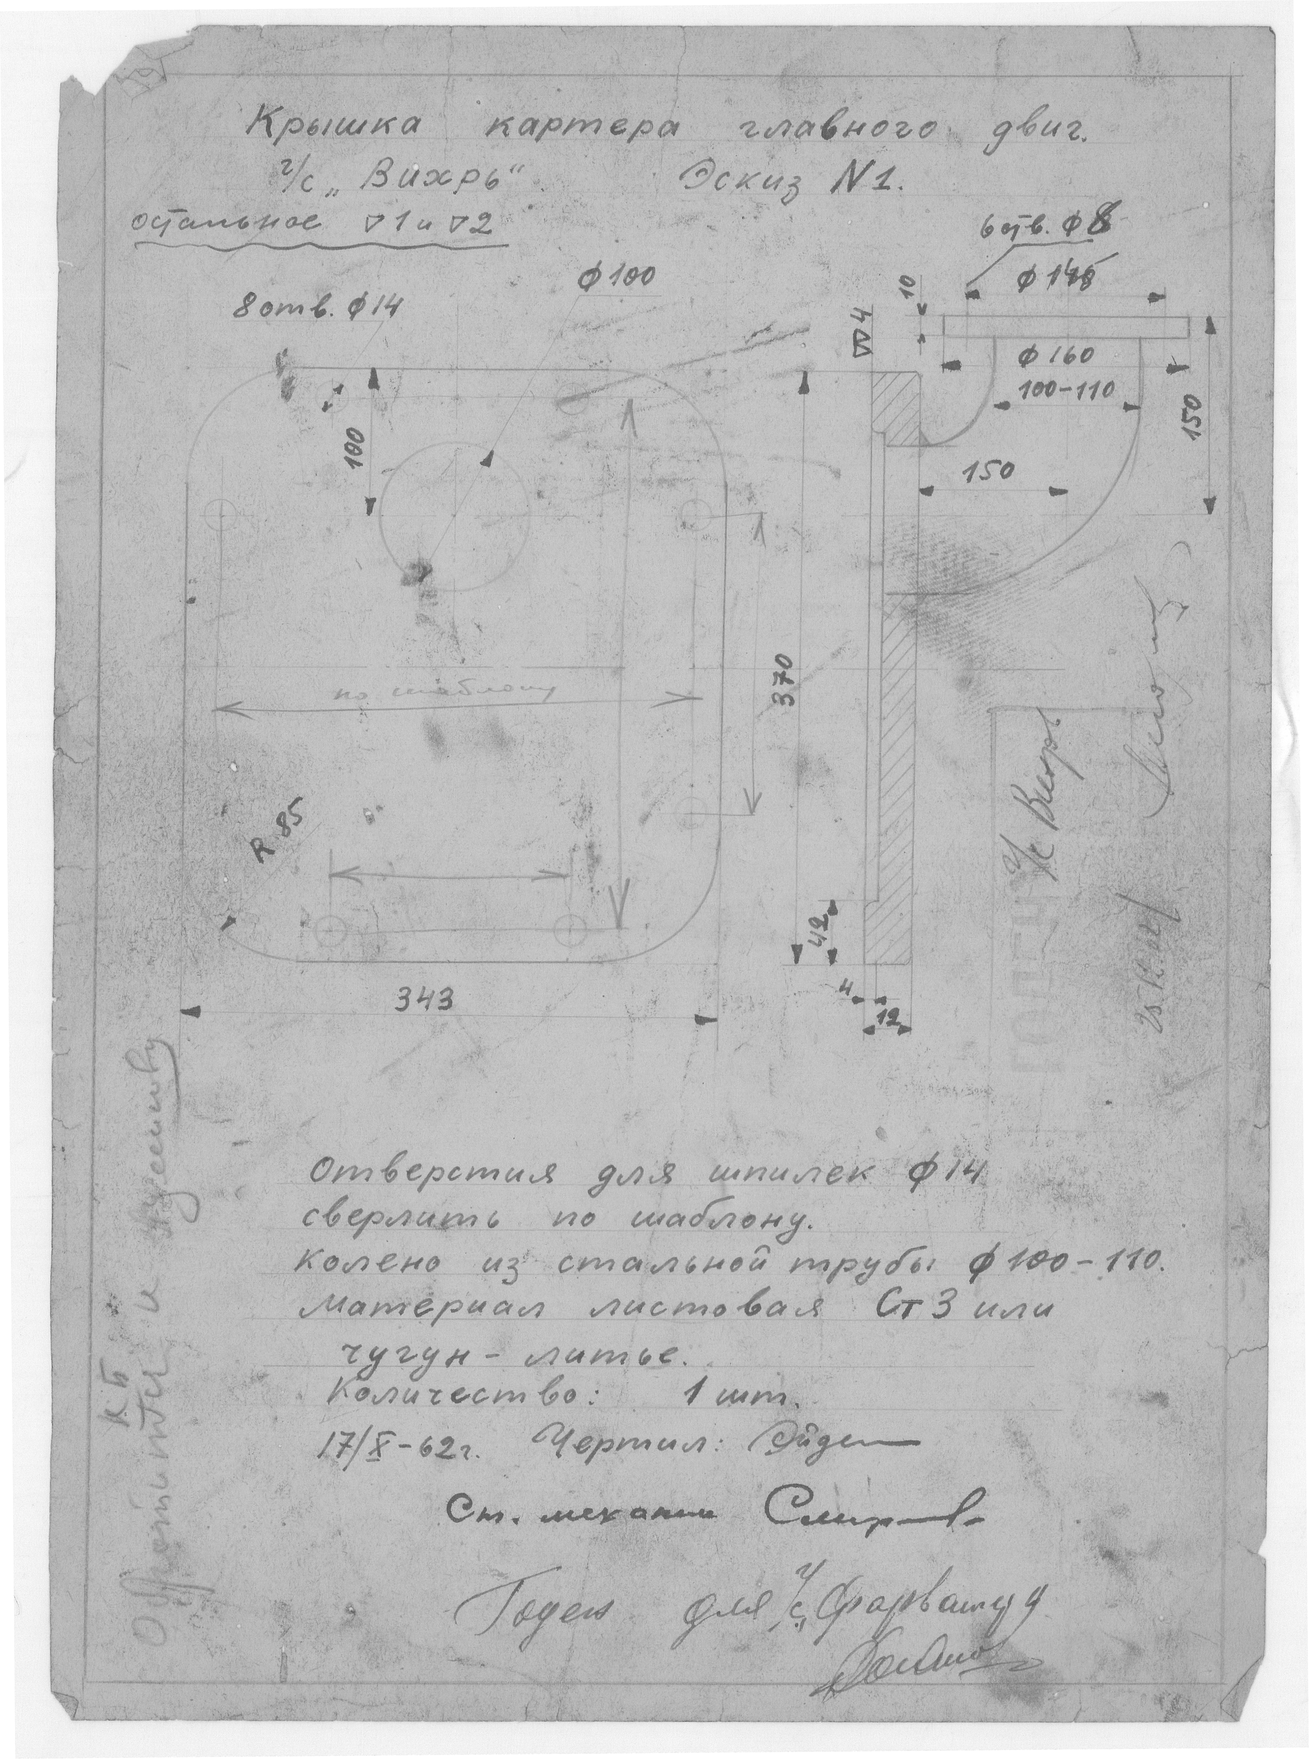 Крышка картера главного двиг.
г/с „Вихрь“ Эскиз N1.
остальное ▽1 и ▽2
6 отв. ϕ8
ϕ145
8 отв. ϕ14
ϕ100
10
▽▽4
ϕ160
100-110
150
100
150
370
по шаблону
R 85
42
4
12
343
г/с Вихрь
Отверстия для шпилек ϕ14
сверлить по шаблону.
Колено из стальной трубы ϕ100-110.
Материал листовая Ст 3 или
чугун - литье.
Количество: 1 шт.
17/X-62г. Чертил:
Ст. механик
Годен для г/с „Фарватер
КБ